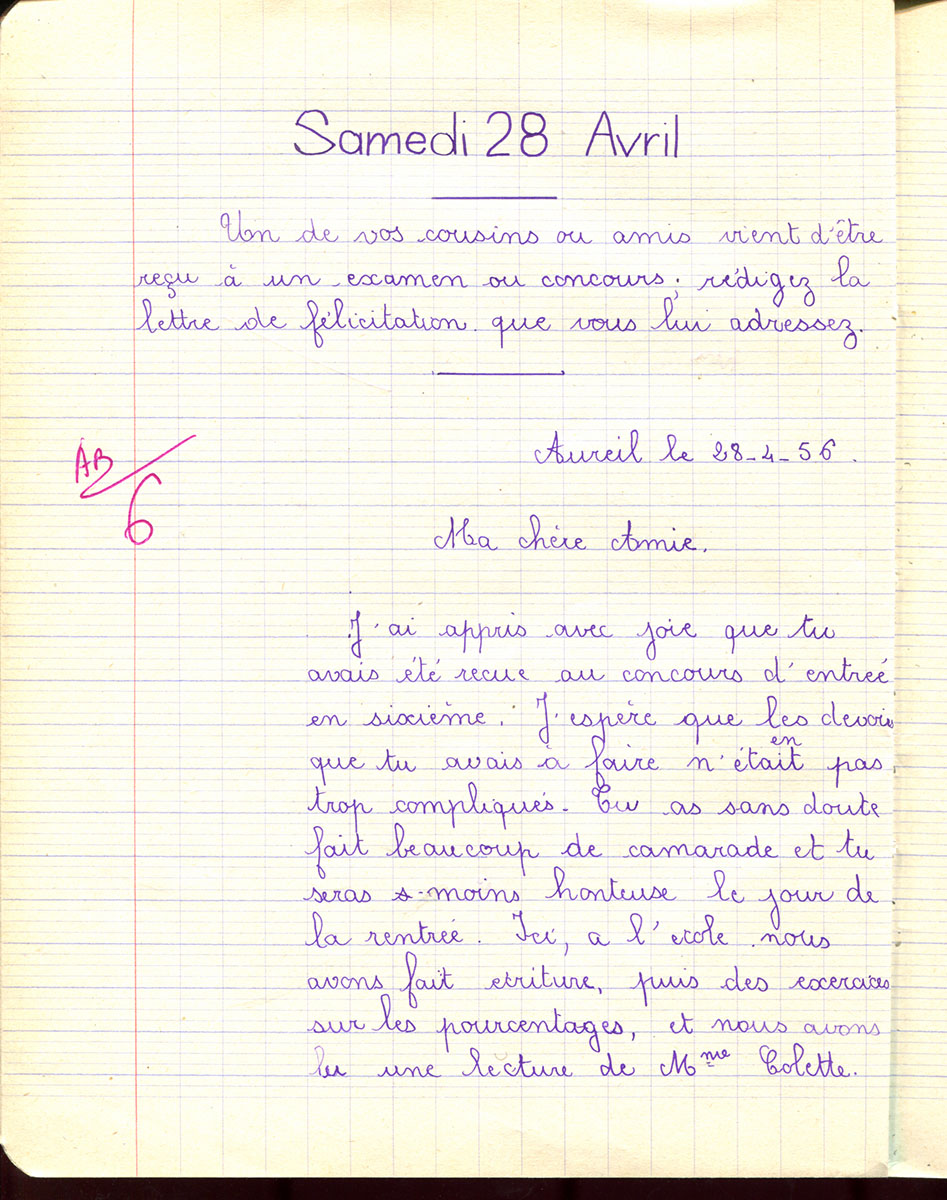 Samedi 28 Avril
Un de vos cousins ou amis vient d'être
reçu à un examen ou concours ; rédigez la
lettre de félicitation que vous lui adressez.
AB
6
Aureil le 28-4-56.
Ma chère Amie.
J'ai appris avec joie que tu
avais été recue au concours d'entreé
en sixième. J'espère que les devoirs
en
que tu avais à faire n'était pas
trop compliqués. Tu as sans doute
fait beaucoup de camarade et tu
seras moins honteuse le jour de
la rentrée. Ici, a l'ecole nous
avons fait ecriture, puis des excercices
sur les pourcentages, et nous avons
lu une lecture de Mme Colette.